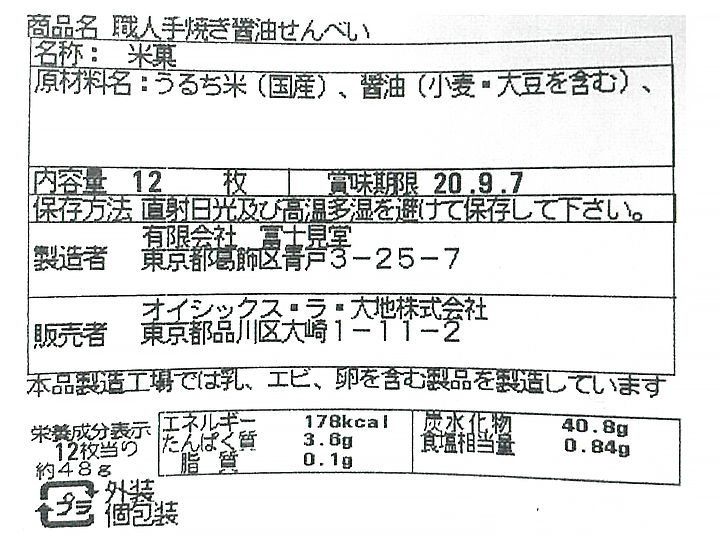 商品名 職人手焼き醤油せんべい
名称： 米菓
原材料名：うるち米（国産）、醤油（小麦・大豆を含む）、
内容量 12 枚 賞味期限 20.9.7
保存方法 直射日光及び高温多湿を避けて保存して下さい。
製造者 有限会社 富士見堂
東京都葛飾区青戸３－２５－７
販売者 オイシックス・ラ・大地株式会社
東京都品川区大崎１－１１－２
本品製造工場では乳、エビ、卵を含む製品を製造しています
栄養成分表示
12枚当り
約４８ｇ
エネルギー 178kcal 炭水化物 40.8g
たんぱく質 3.6g 食塩相当量 0.84g
脂 質 0.1g
プラ 外装
個包装